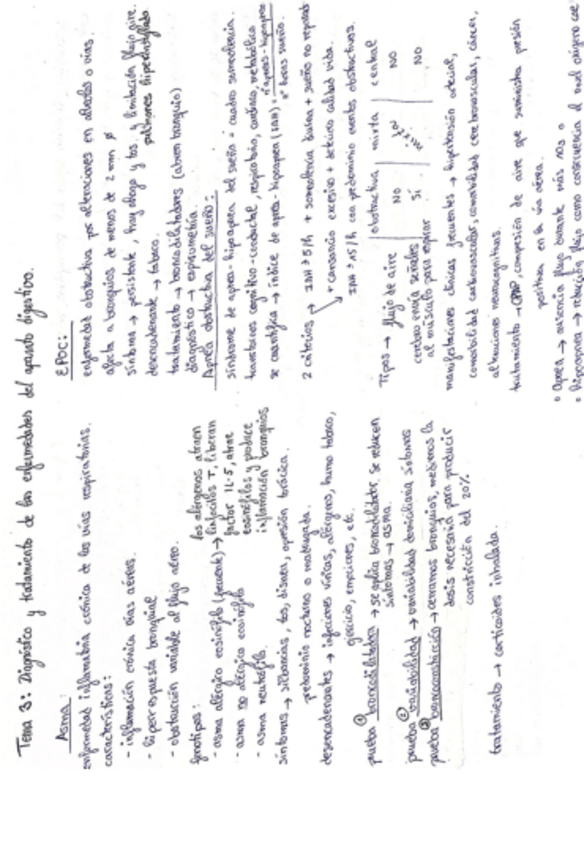 Tema 3: Diagnóstico y tratamiento de las enfermedades del aparato digestivo.
Asma:
enfermedad inflamatoria crónica de las vías respiratorias.
características:
- inflamación crónica vías aéreas.
- hiperrespuesta bronquial
- obstrucción variable al flujo aéreo.
fenotipos:
- asma alérgico eosinófilo (frecuente) → los alérgenos atraen
linfocitos T, liberan
factor IL-5, atrae
eosinófilos y produce
inflamación bronquios
- asma no alérgico eosinófilo
- asma neutrófilo.
síntomas → sibilancias, tos, disnea, opresión torácica.
predominio nocturno o madrugada.
desencadenantes → infecciones víricas, alérgenos, humo tabaco,
ejercicio, emociones, etc.
prueba ① broncodilatadora → se aplica broncodilatador, se reducen
síntomas → asma.
prueba ② variabilidad → variabilidad domiciliaria síntomas
prueba ③ broncoconstricción → cerramos bronquios, medimos la
dosis necesaria para producir
constricción del 20%
tratamiento → corticoides inhalada.
EPOC:
enfermedad obstructiva por alteraciones en alveolos o vías.
afecta a bronquios de menos de 2 mm ø
síntoma → persistente, hay ahogo y tos, y limitación flujo aire.
pulmones hiperinflados
desencadenante → tabaco.
tratamiento → broncodilatadores (abren bronquio)
diagnóstico → espirometría
Apnea obstructiva del sueño:
síndrome de apnea-hipopnea del sueño = cuadro somnolencia.
trastornos cognitivo-conductal, respiratorio, cardiaco, metabólico
se cuantifica → índice de apnea-hipopnea (IAH) = nº apneas-hipopnea
nº horas sueño.
2 criterios → IAH ≥ 5/h + somnolencia diurna + sueño no reparador
+ cansancio excesivo + deterioro calidad vida.
IAH ≥ 15/h con predominio eventos obstructivas.
Tipos → | obstructiva | mixta | central
flujo de aire | NO | | NO
cerebro envía señales | SÍ | | NO
al músculo para respirar
manifestaciones clínicas frecuentes → hipertensión arterial,
comorbilidad cardiovascular, comorbilidad cerebrovasculas, cáncer,
alteraciones neurocognitivas.
tratamiento → CPAP, compresión de aire que suministra presión
positiva en la vía aérea.
• Apnea → ausencia flujo durante más 10s o
• hipopnea → reducción flujo como consecuencia el nivel oxígeno cae